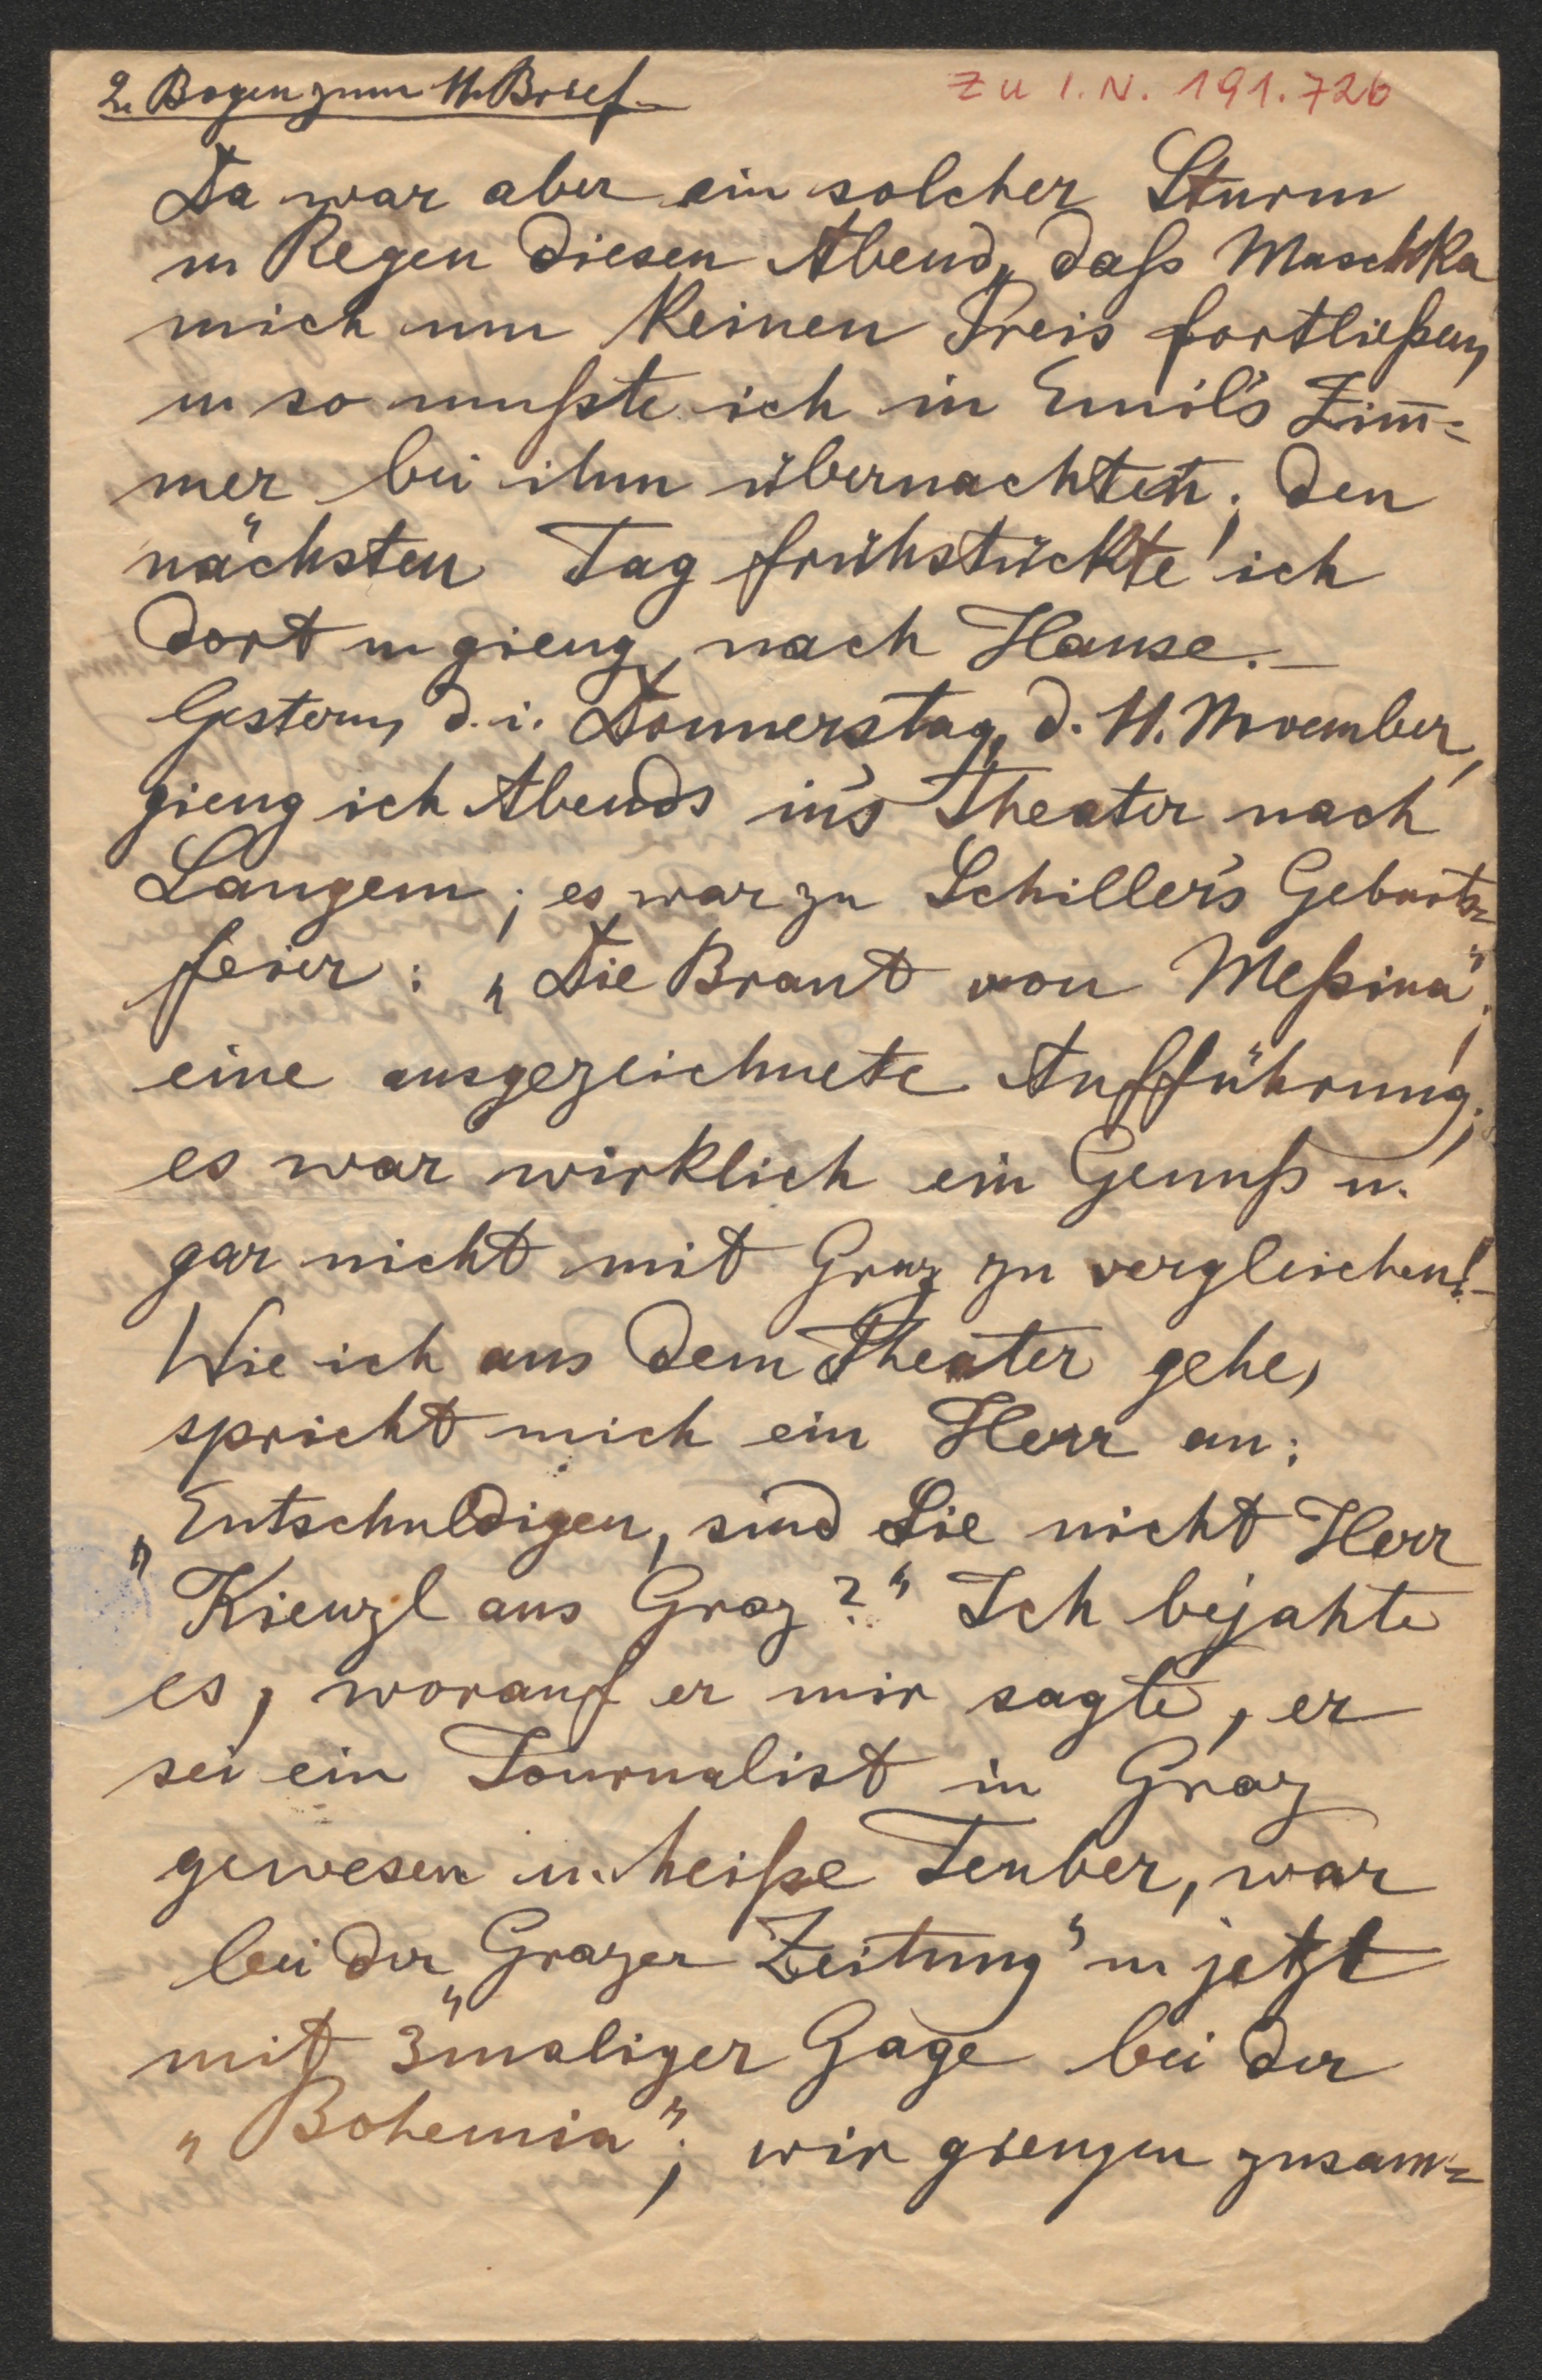 2. Bogen zum 11. Brief.
Zu I. N. 191.726
Da war aber ein solcher Sturm
u. Regen diesen Abend, daß Maschka
mich um keinen Preis fortließen,
u. so mußte ich in Emil's Zim̅=
mer bei ihm übernachten; den
nächsten Tag frühstückte ich
dort u. gieng nach Hause. –
Gestern, d. i. Donnerstag, d. 11. November,
gieng ich Abends in's Theater nach
Langem; es war zu Schiller's Geburts=
feier: „Die Braut von Meßina";
eine ausgezeichnete Aufführung;
es war wirklich ein Genuß u.
gar nicht mit Graz zu vergleichen! –
Wie ich aus dem Theater gehe,
spricht mich ein Herr an:
„Entschuldigen, sind Sie nicht Herr
„Kienzl aus Graz?" Ich bejahte
es, worauf er mir sagte, er
sei ein Journalist in Graz
gewesen u. heiße Teuber, war
bei der „Grazer Zeitung" u. jetzt
mit 3maliger Gage bei der
„Bohemia"; wir giengen zusam=